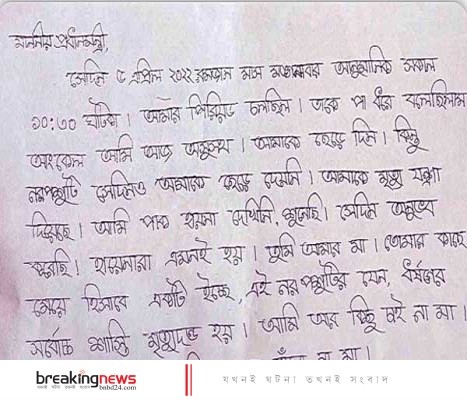 মাননীয় প্রধানমন্ত্রী,
সেদিন ৫ এপ্রিল ২০২২ রমজান মাস মঙ্গলবার আনুমানিক সকাল
১০:৩০ ঘটিকা। আমার পিরিয়ড চলছিল। তাকে পা ধরে বলেছিলাম
আংকেল আমি আজ অসুস্থ। আমাকে ছেড়ে দিন। কিন্তু
নরপশুটি সেদিনও আমাকে ছেড়ে দেয়নি। আমাকে মৃত্যু যন্ত্রণা
দিয়েছে। আমি পাক হায়না দেখিনি, শুনেছি। সেদিন অনুভব
করেছি। হায়েনারা এমনই হয়। তুমি আমার মা। তোমার কাছে
মেয়ে হিসাবে একটি ইচ্ছে, এই নরপশুটির যেন, ধর্ষণের
সর্বোচ্চ শাস্তি মৃত্যুদন্ড হয়। আমি আর কিছু চাই না মা।
না মা।
breakingnews
bnbd24.com
যখনই ঘটনা তখনই সংবাদ